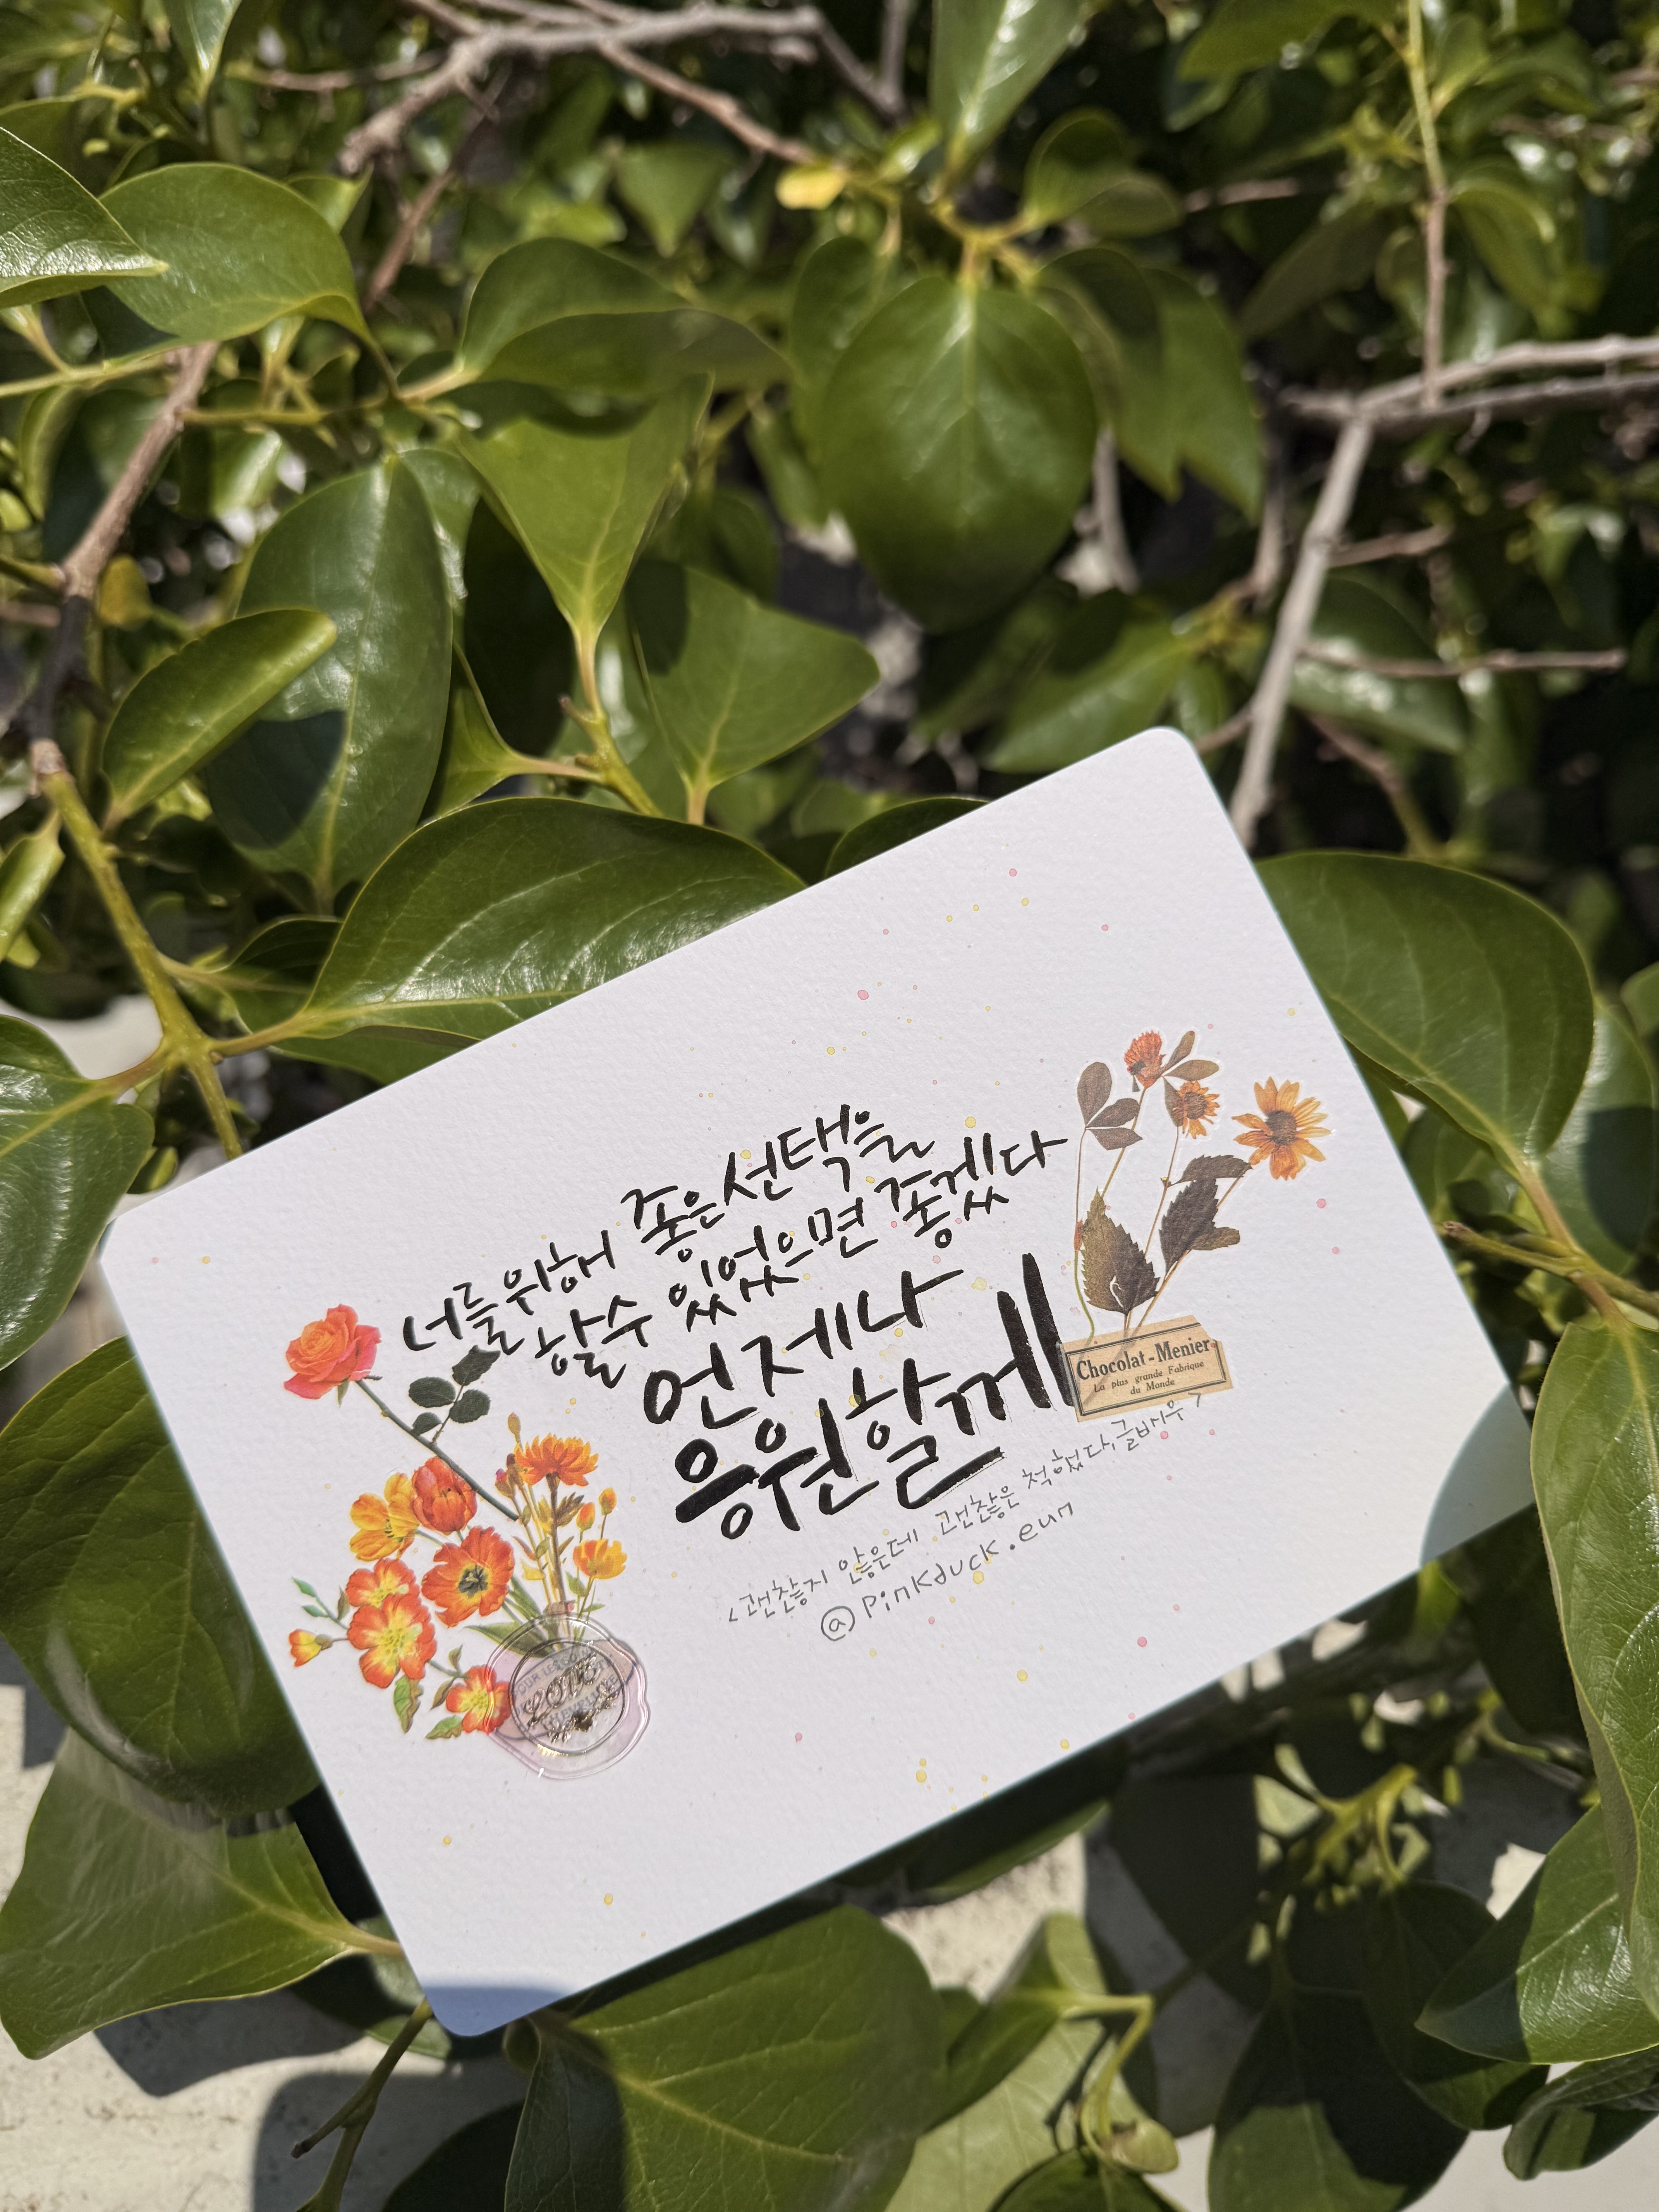 너를위해 좋은선택을
할수 있었으면 좋겠다
언제나
응원할게
Chocolat-Menier
La plus grande Fabrique
du Monde
<괜찮지 않은데 괜찮은 척했다, 글배우>
@pinkduck.eun